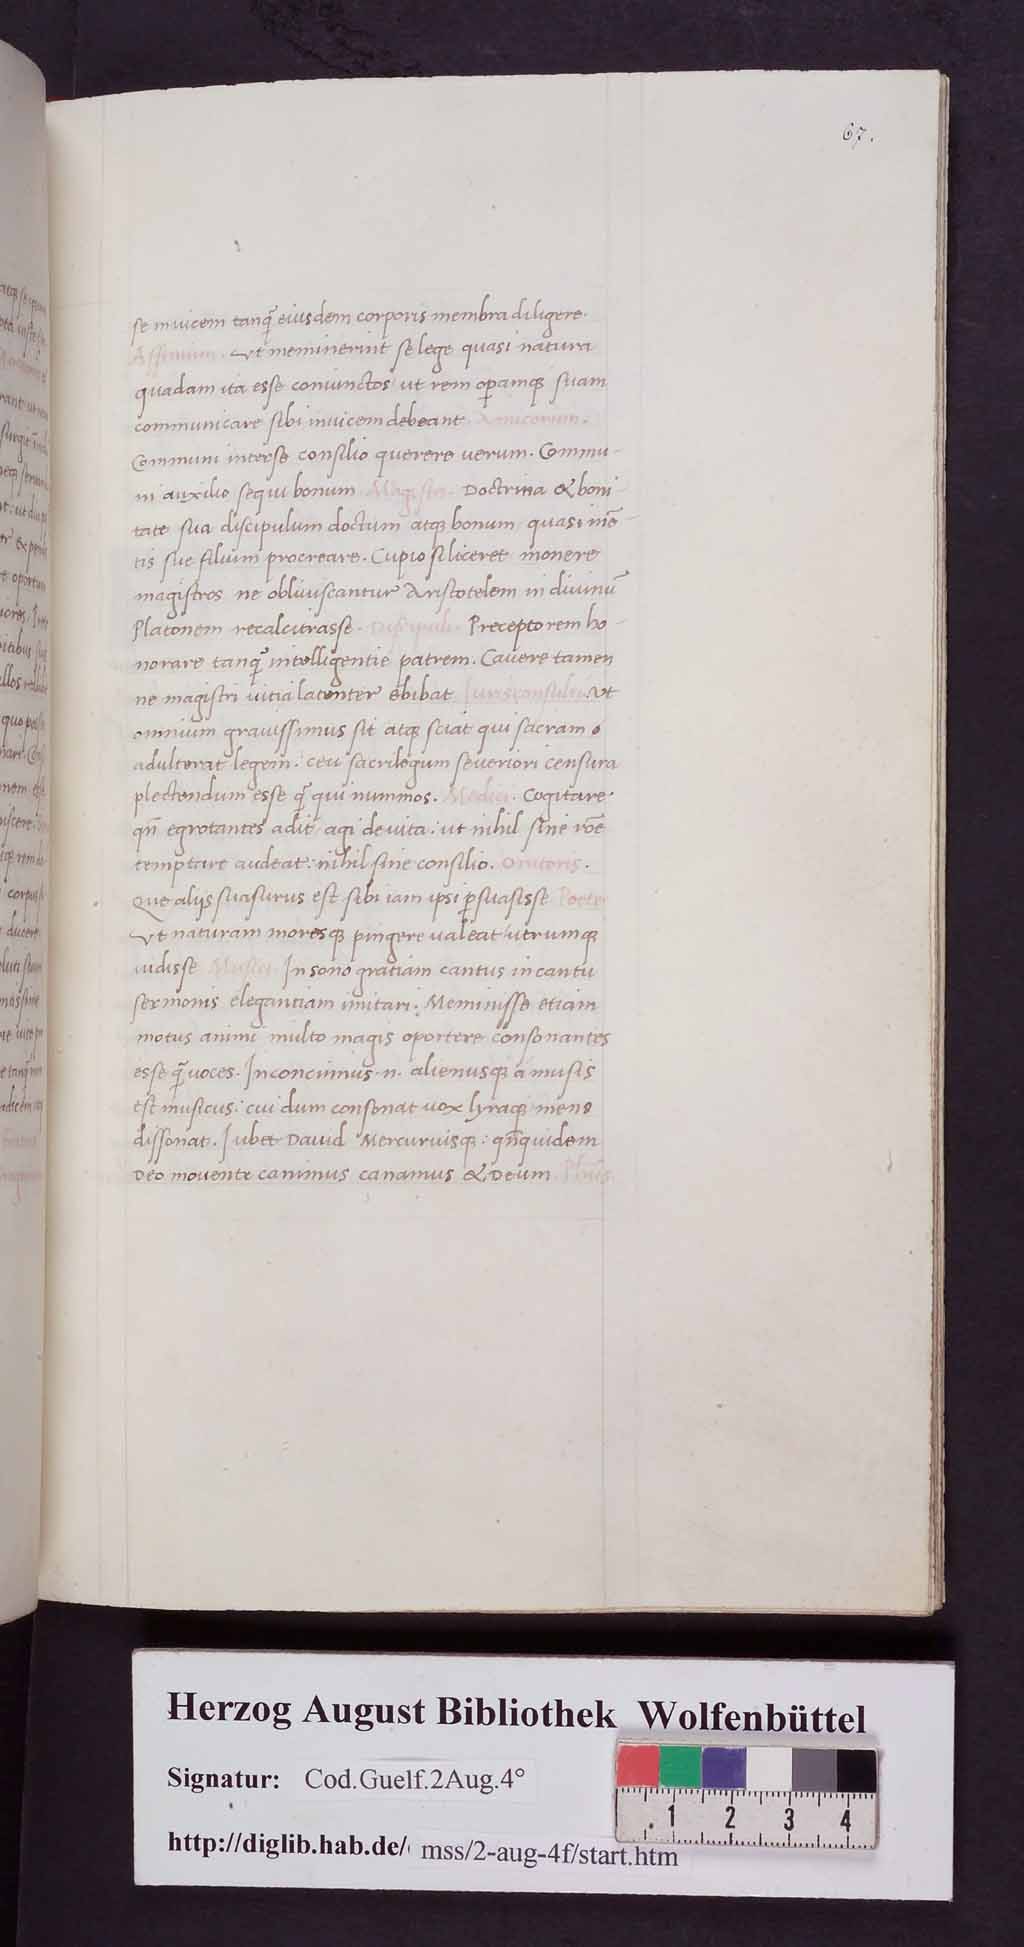 67.
se inuicem tanq̃ eiusdem corporis membra diligere.
Affinium. Vt meminerint se lege quasi natura
quadam ita esse coniunctos ut rem oꝑamqꝫ suam
communicare sibi inuicem debeant. Amicorum.
Communi interse consilio querere uerum. Commu-
ni auxilio sequi bonum. Magistri. Doctrina & boni-
tate sua discipulum doctum atqꝫ bonum quasi mē-
tis sue filium procreare. Cupio si liceret monere
magistros ne obliuiscantur Aristotelem in diuinū
Platonem recalcitrasse. Discipuli. Preceptorem ho-
norare tanq̃ intelligentie patrem. Cauere tamen
ne magistri uitia latenter ebibat. Jurisconsulti. Vt
omnium grauissimus sit atqꝫ sciat qui sacram
adulterat legem: ceu sacrilegum seueriori censura
plectendum esse q̃ qui nummos. Medici. Cogitare.
qñ egrotantes adit agi de uita: ut nihil sine rōe
temptare audeat: nihil sine consilio. Oratoris.
Que alijs suasurus est sibi iam ipsi ꝑsuasisse Poete
Vt naturam moresqꝫ pingere ualeat/utrumqꝫ
uidisse Musici. In sono gratiam cantus in cantu
sermonis elegantiam imitari: Meminisse etiam
motus animi multo magis oportere consonantes
esse q̃ uoces. Inconcinnus .n. alienusqꝫ a musis
est musicus: cui dum consonat uox lyraqꝫ mens
dissonat. Iubet David Mercuriusqꝫ: qñquidem
Deo mouente canimus canamus & Deum. Phūs
Herzog August Bibliothek Wolfenbüttel
Signatur: Cod.Guelf.2Aug.4°
1 2 3 4
http://diglib.hab.de/ mss/2-aug-4f/start.htm